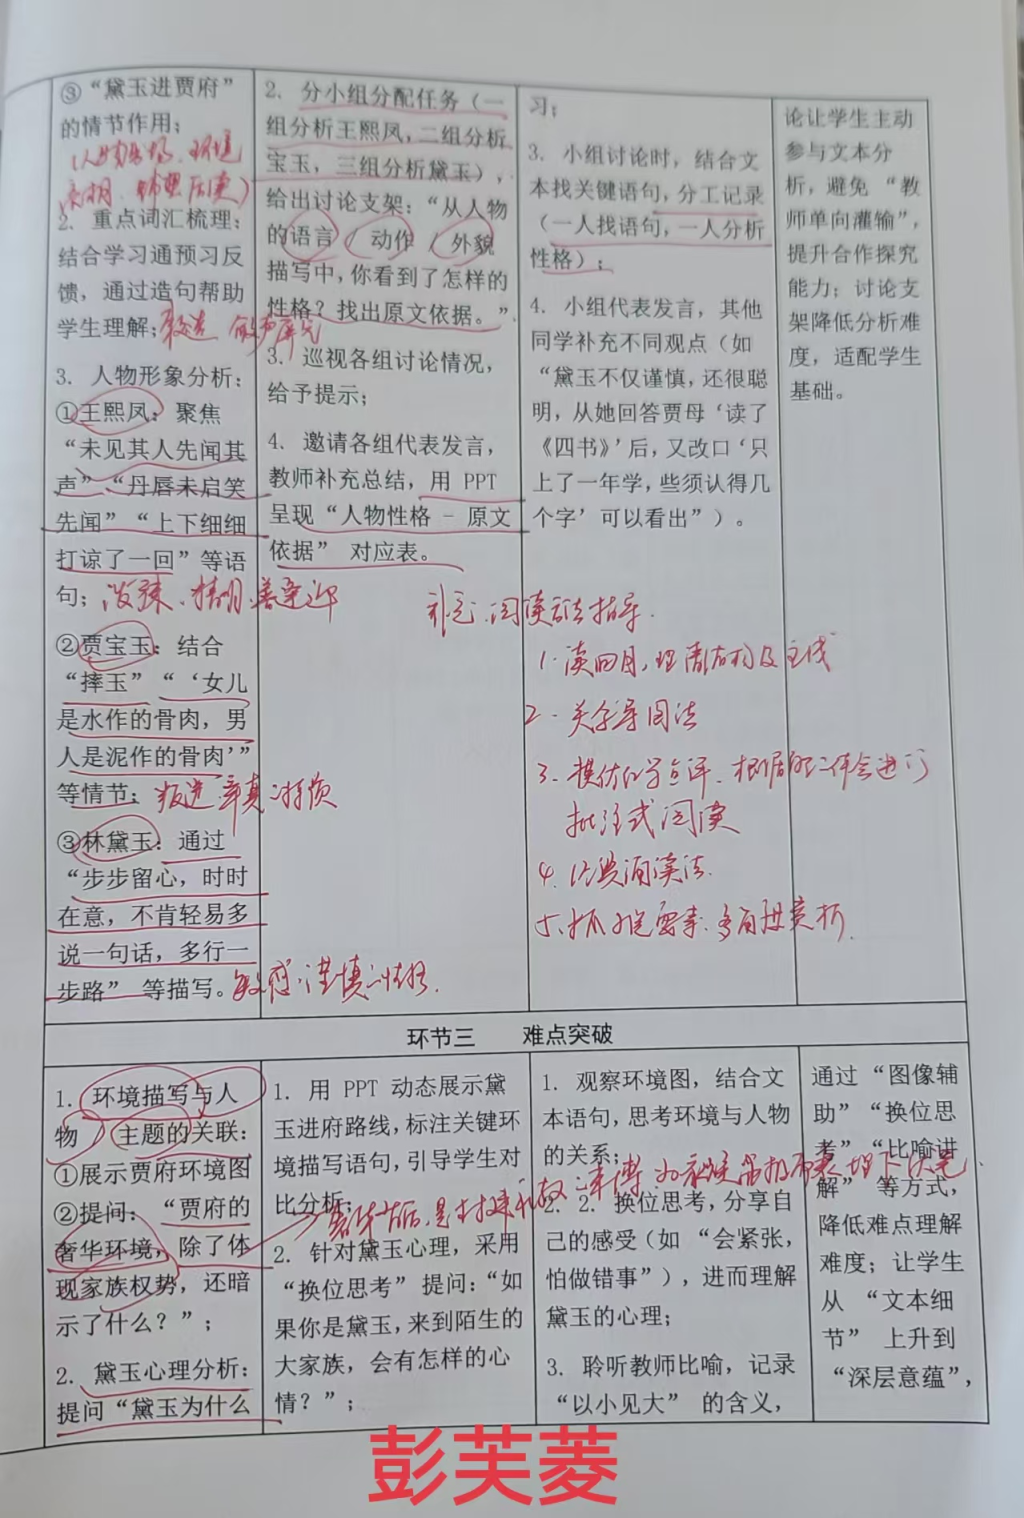 ③“黛玉进贾府”
的情节作用；
2. 重点词汇梳理：
结合学习通预习反
馈，通过造句帮助
学生理解；
3. 人物形象分析：
①王熙凤：聚焦
“未见其人先闻其
声”“丹唇未启笑
先闻”“上下细细
打谅了一回”等语
句；泼辣、精明、善逢迎
②贾宝玉：结合
“摔玉”“‘女儿
是水作的骨肉，男
人是泥作的骨肉’”
等情节；叛逆 率真
③林黛玉：通过
“步步留心，时时
在意，不肯轻易多
说一句话，多行一
步路”等描写。敏感、谨慎
2. 分小组分配任务（一
组分析王熙凤，二组分析
宝玉，三组分析黛玉），
给出讨论支架：“从人物
的语言 / 动作 / 外貌
描写中，你看到了怎样的
性格？找出原文依据。”
3. 巡视各组讨论情况，
给予提示；
4. 邀请各组代表发言，
教师补充总结，用 PPT
呈现“人物性格 - 原文
依据” 对应表。
习；
3. 小组讨论时，结合文
本找关键语句，分工记录
（一人找语句，一人分析
性格）；
4. 小组代表发言，其他
同学补充不同观点（如
“黛玉不仅谨慎，还很聪
明，从她回答贾母‘读了
《四书》’后，又改口‘只
上了一年学，些须认得几
个字’可以看出”）。
阅读方法指导.
1. 读回目，理清结构及主线
2.
3. 模仿
批注式阅读
4. 诵读法.
论让学生主动
参与文本分
析，避免 “教
师单向灌输”，
提升合作探究
能力；讨论支
架降低分析难
度，适配学生
基础。
环节三 难点突破
1. 环境描写与人
物 / 主题的关联：
①展示贾府环境图
②提问：“贾府的
奢华环境，除了体
现家族权势，还暗
示了什么？”；
2. 黛玉心理分析：
提问“黛玉为什么
1. 用 PPT 动态展示黛
玉进府路线，标注关键环
境描写语句，引导学生对
比分析；
2. 针对黛玉心理，采用
“换位思考” 提问：“如
果你是黛玉，来到陌生的
大家族，会有怎样的心
情？”；
1. 观察环境图，结合文
本语句，思考环境与人物
的关系；
2. 2. 换位思考，分享自
己的感受（如 “会紧张，
怕做错事”），进而理解
黛玉的心理；
3. 聆听教师比喻，记录
“以小见大” 的含义，
通过 “图像辅
助”“换位思
考”“比喻讲
解” 等方式，
降低难点理解
难度；让学生
从 “文本细
节” 上升到
“深层意蕴”，
彭芙菱